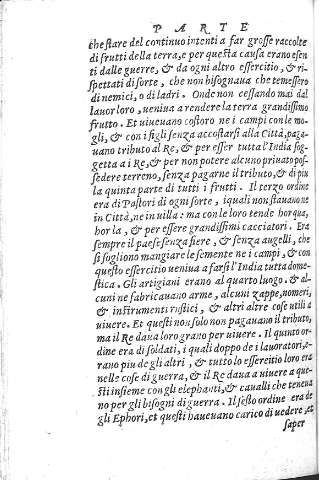 PARTE
che stare del continuo intenti a far grosse raccolte
di frutti della terra, e per questa causa erano esen
ti dalle guerre, & da ogni altro essercitio, & ri-
spettati di sorte, che non bisognaua che temessero
di nemici, o di ladri. Onde non cessando mai dal
lauor loro, ueniua a rendere la terra grandissimo
frutto. Et uiueuano costoro ne i campi con le mo-
gli, & con i figli senza accostarsi alla Città, paga-
uano tributo al Re, & per esser tutta l'India sog-
getta a i Re, & per non potere alcuno priuato pos-
sedere terreno, senza pagarne il tributo, & di piu
la quinta parte di tutti i frutti. Il terzo ordine
era di Pastori di ogni sorte, i quali non stauano ne
in Città, ne in uilla: ma con le loro tende hor qua,
hor la, & per essere grandissimi cacciatori. Era
sempre il paese senza fiere, & senza augelli, che
si sogliono mangiare le semente ne i campi, & con
questo essercitio ueniua a farsi l'India tutta dome-
stica. Gli artigiani erano al quarto luogo. & al-
cuni ne fabricauano arme, alcuni zappe, uomeri,
& instrumenti rustici, & altri altre cose utili a
uiuere. Et questi non solo non pagauano il tributo,
ma il Re daua loro grano per uiuere. Il quinto or-
dine era di soldati, i quali doppo de i lauoratori, e-
rano piu de gli altri, & tutto lo essercitio loro era
nelle cose di guerra, & il Re daua a uiuere a que-
sti insieme con gli elephanti, & caualli che teneua
no per gli bisogni di guerra. Il sesto ordine era de
gli Ephori, et questi haueuano carico di uedere, et
saper